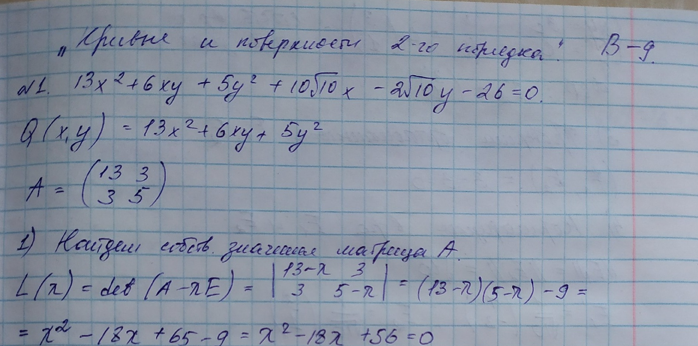 „Кривые и поверхности 2-го порядка". В-9.
№1. 13x² + 6xy + 5y² + 10√10x - 2√10y - 26 = 0.
Q(x,y) = 13x² + 6xy + 5y²
A = (13 3
3 5)
1) Найдем собств. значения матрица A.
L(λ) = det(A - λE) = |13-λ 3
3 5-λ| = (13-λ)(5-λ) - 9 =
= λ² - 18λ + 65 - 9 = λ² - 18λ + 56 = 0